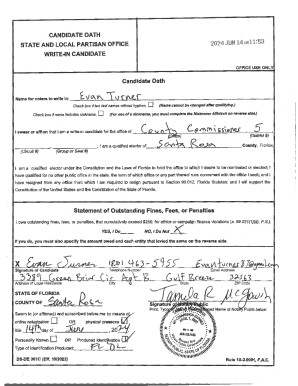 CANDIDATE OATH
STATE AND LOCAL PARTISAN OFFICE
WRITE-IN CANDIDATE
2024 JUN 14 AM 11:53
OFFICE USE ONLY
Candidate Oath
Name for voters to write in: Evan Turner
Check box if two last names without hyphen. (Name cannot be changed after qualifying.)
Check box if name includes nickname. (For use of a nickname, you must complete the Nickname Affidavit on reverse side.)
I swear or affirm that I am a write-in candidate for the office of County Commissioner 5
(Office) (District #)
I am a qualified elector of Santa Rosa County, Florida.
(Circuit #) (Group or Seat #)
I am a qualified elector under the Constitution and the Laws of Florida to hold the office to which I desire to be nominated or elected; I
have qualified for no other public office in the state, the term of which office or any part thereof runs concurrent with the office I seek; and I
have resigned from any office from which I am required to resign pursuant to Section 99.012, Florida Statutes; and I will support the
Constitution of the United States and the Constitution of the State of Florida.
Statement of Outstanding Fines, Fees, or Penalties
I owe outstanding fines, fees, or penalties, that cumulatively exceed $250, for ethics or campaign finance violations (s. 99.021(1)(d), F.S.).
YES, I Do NO, I Do Not X
If you do, you must also specify the amount owed and each entity that levied the same on the reverse side.
X Evan Turner (801) 463-5955
Signature of Candidate Telephone Number Email Address
3389 Green Briar Cir Apt B Gulf Breeze 32563
Address of Legal Residence City State ZIP Code
STATE OF FLORIDA
COUNTY OF Santa Rosa
Signature of Notary Public
Sworn to (or affirmed) and subscribed before me by means of
online notarization OR physical presence
this 14th day of June, 2024
Personally Known OR Produced Identification
Type of Identification Produced: FL DL
DS-DE 301C Rule 1S-2.0001, F.A.C.